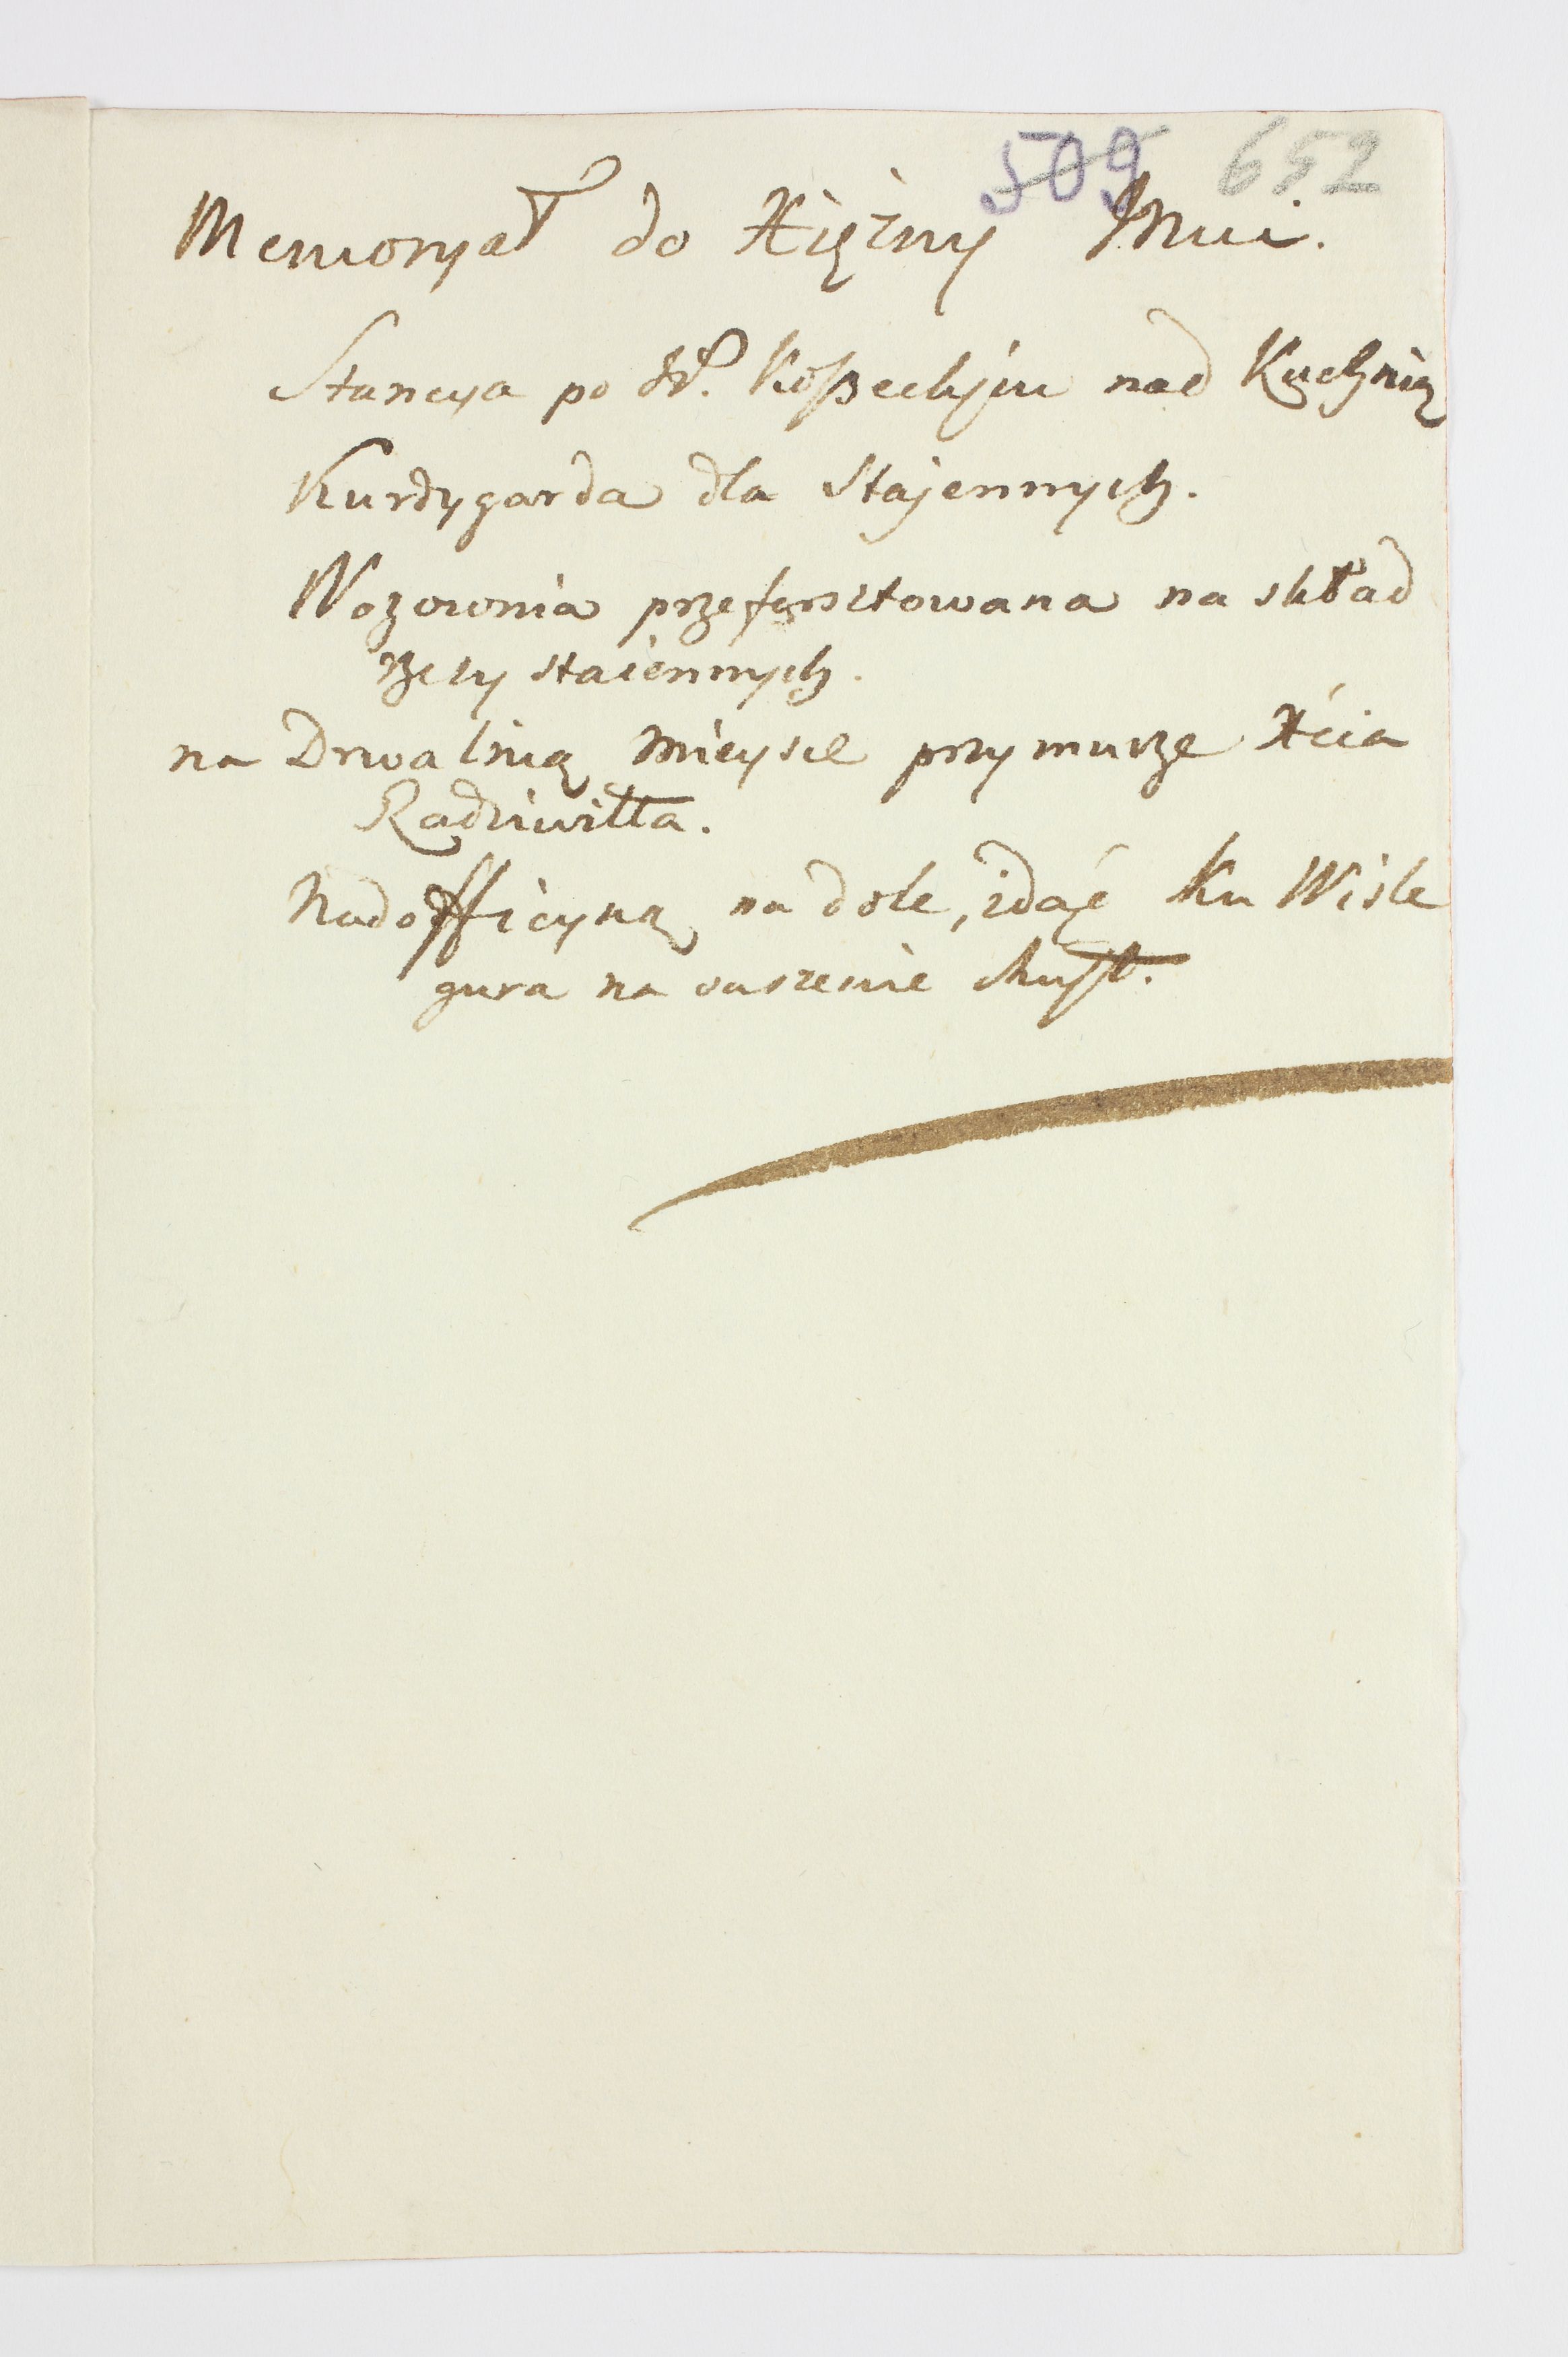 509 652
Memoryał do Xiężny Jmci.
Stancya po JP. Koßeckjm nad Kuchnią
Kurdygarda dla Stajennych.
Wozownia przeforsztowana na skład
rzeczy staiennych.
na Drwalnią mieysce przy murze Xcia
Radziwiłła.
Nad officyną na dole, idąc ku Wiśle
gura na suszenie chust.